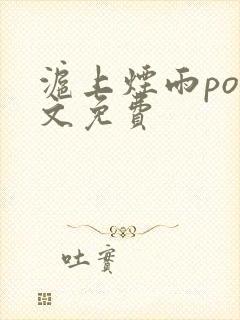 滬上煙雨po
文免費
吐實